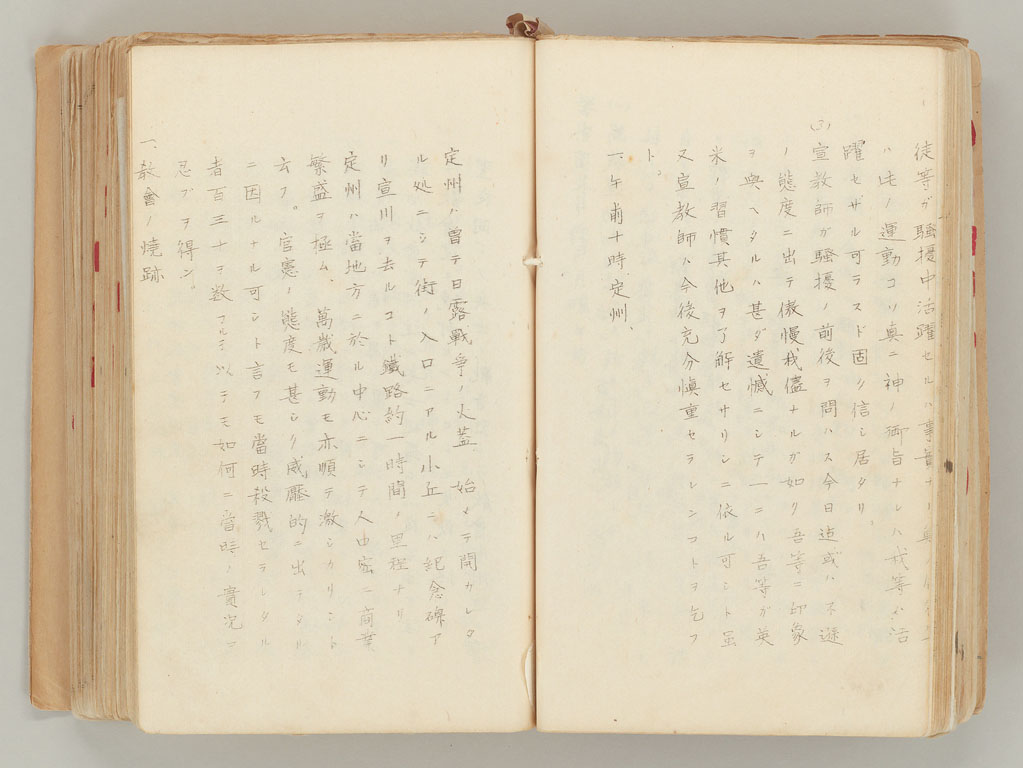 徒等ガ騒擾中活躍セルハ事實ナリ
ハ此ノ運動コソ真ニ神ノ御旨ナレハ我等ガ活
躍セザル可ラスド固ク信シ居タリ。
(3)
宣教師ガ騒擾ノ前後ヲ問ハス今日迄或ハ不遜
ノ態度ニ出テ傲慢我儘ナルガ如ク吾等ニ印象
ヲ與ヘタルハ甚ダ遺憾ニシテ一ニハ吾等ガ英
米ノ習慣其他ヲ了解セサリシニ依ル可シト虽
又宣教師ハ今後充分愼重セラレンコトヲ乞フ
ト。
六、午前十時定州、
定州ハ曽テ日露戰争ノ火蓋始メテ開カレタ
ル処ニシテ街ノ入口ニアル小丘ニハ紀念碑ア
リ宣川ヲ去ルコト鐵路約一時間ノ里程ナリ
定州ハ當地方ニ於ル中心ニシテ人口密ニ商業
繁盛ヲ極ム、萬歳運動モ亦順テ激シカリシト
云フ。官憲ノ態度モ甚シク威壓的ニ出テタル
ニ因ルナル可シト言フモ當時殺戮セラレタル
者百三十ヲ数フルヲ以テモ如何ニ當時ノ實況ヲ
忍ブヲ得ン。
一、教會ノ燒跡